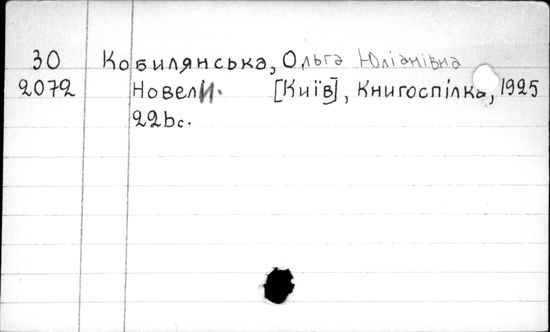 30 Кобилянська, Ольга Юліанівна
2072 Новели. [Київ], Книгоспілка, 1925
22bс.